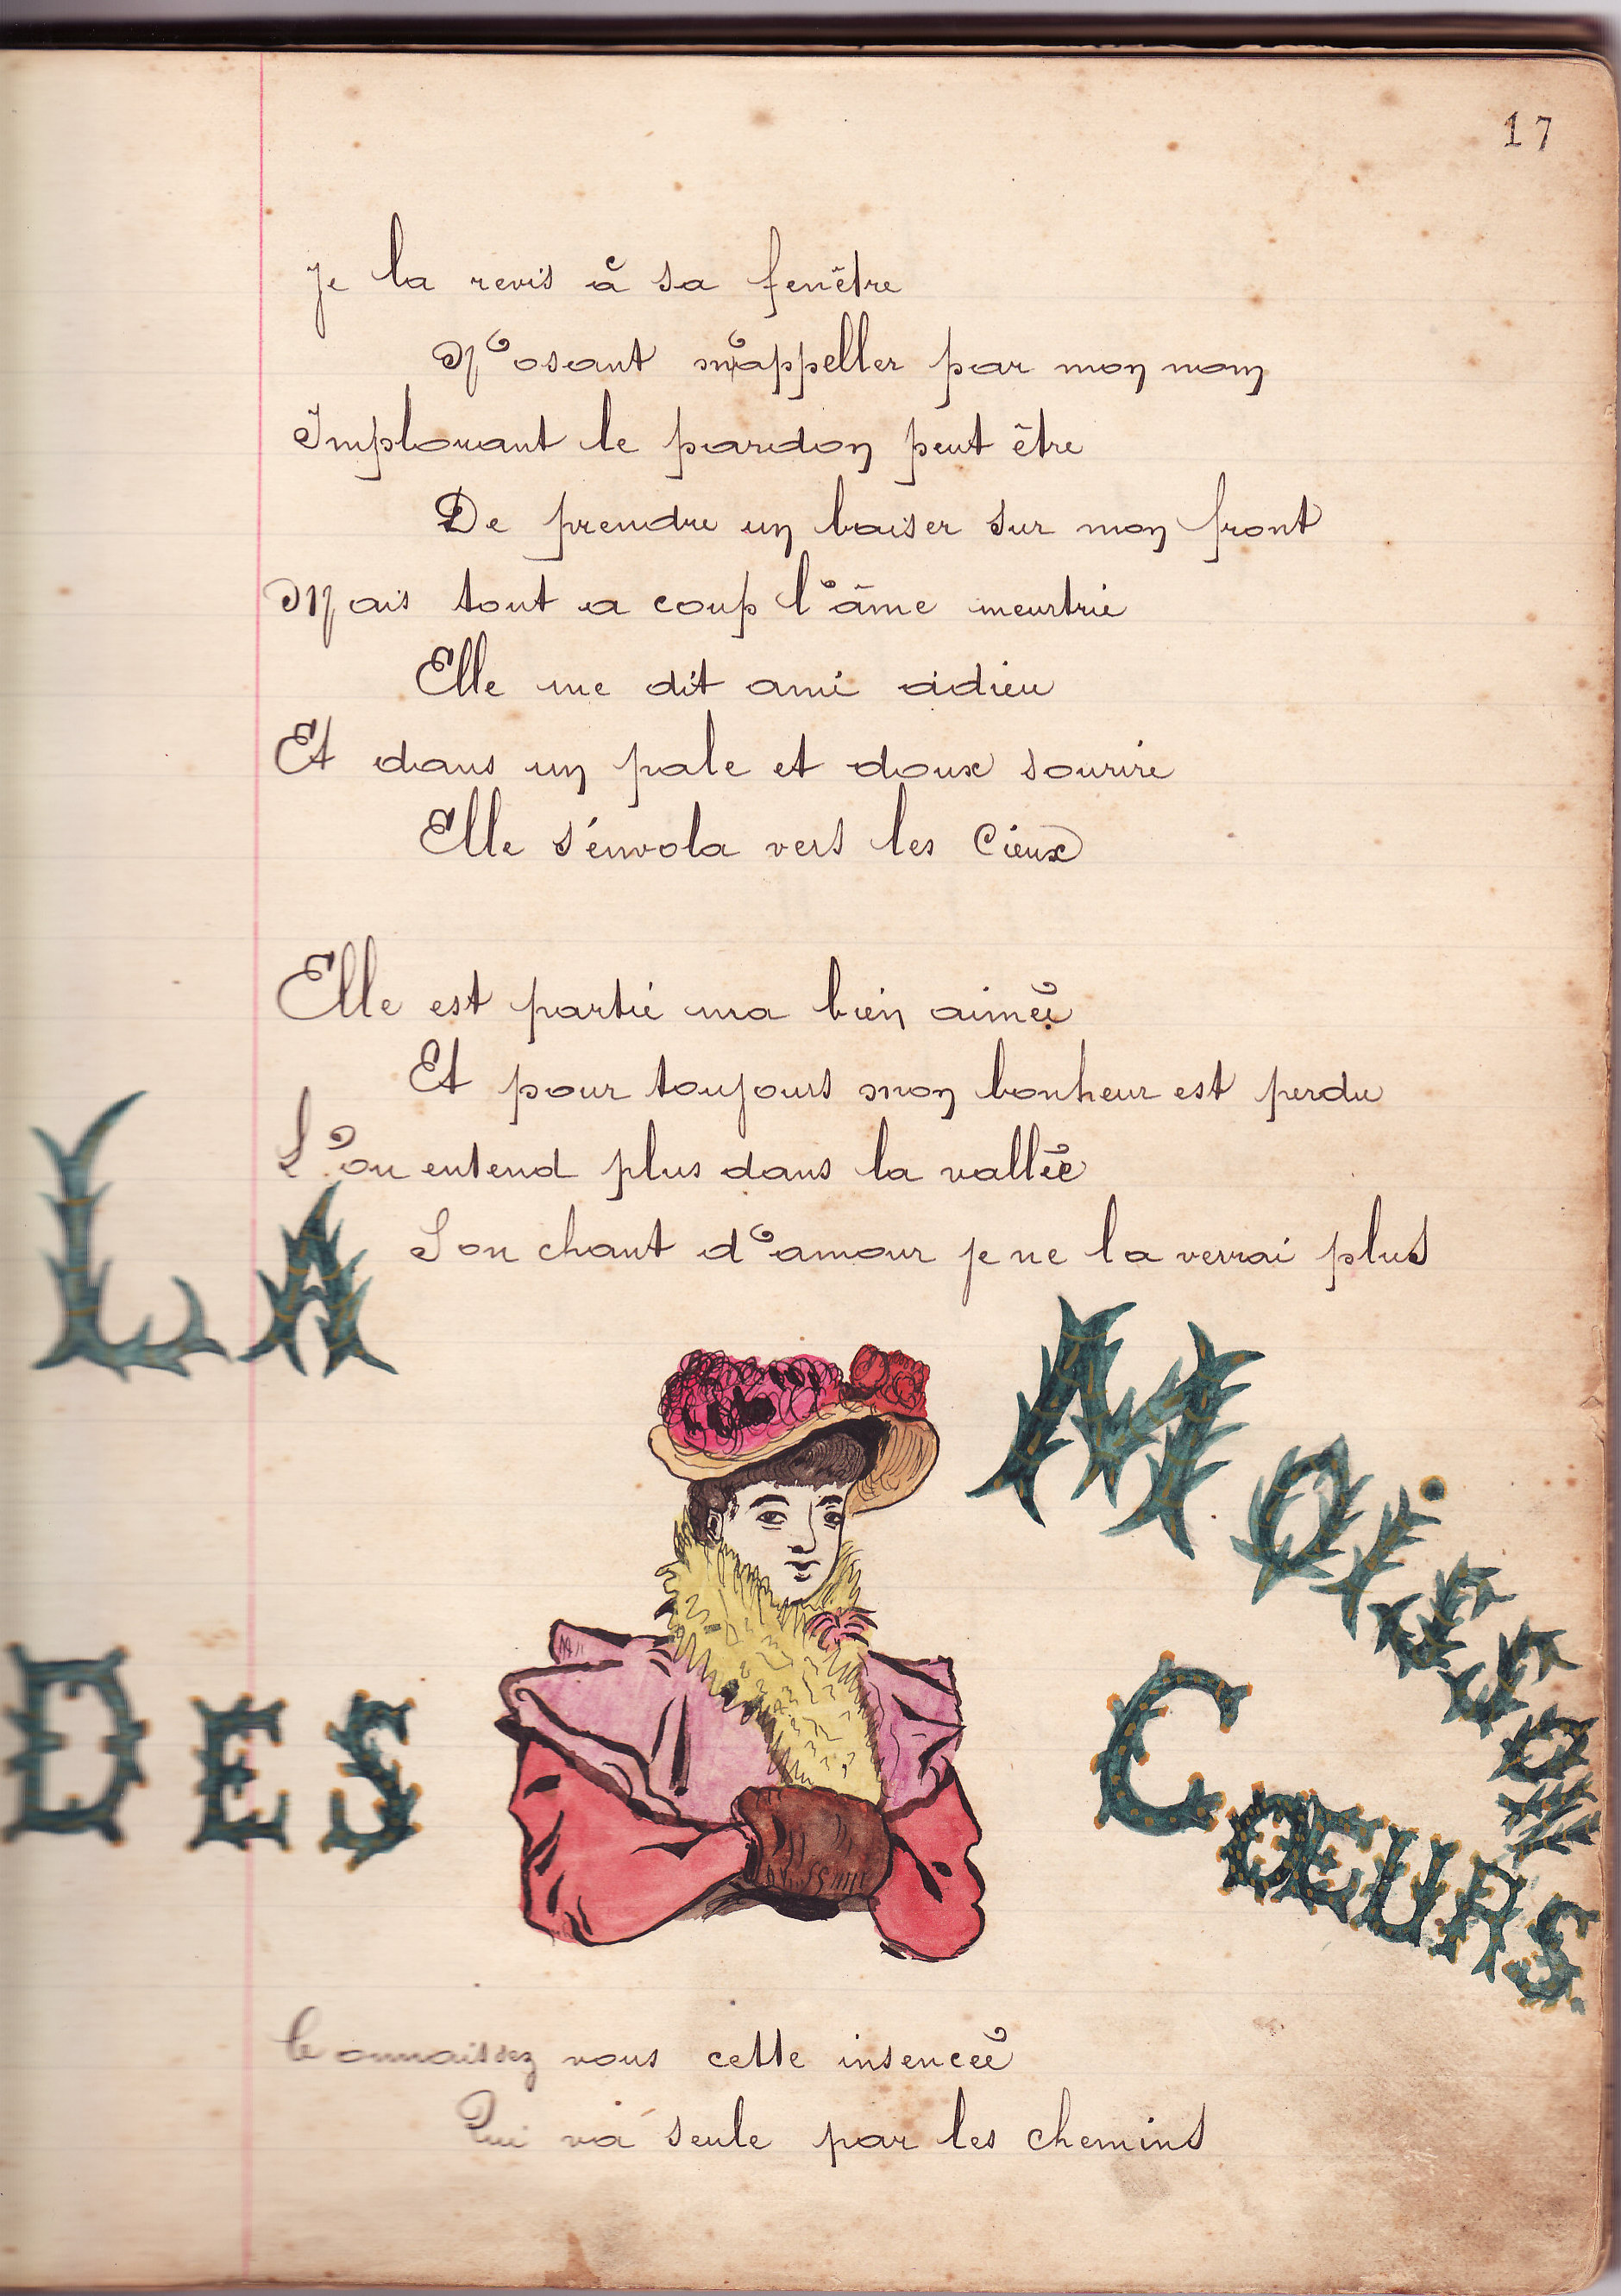 17
Je la revis à sa fenêtre
N'osant m'appeller par mon nom
Implorant le pardon peut être
De prendre un baiser sur mon front
Mais tout a coup l'âme meurtrie
Elle me dit ami adieu
Et dans un pale et doux sourire
Elle s'envola vers les Cieux
Elle est partie ma bien aimée
Et pour toujours mon bonheur est perdu
L'on entend plus dans la vallée
Son chant d'amour je ne la verrai plus
LA MOISSON
DES CŒURS
Connaissez vous cette insencée
Qui va seule par les chemins